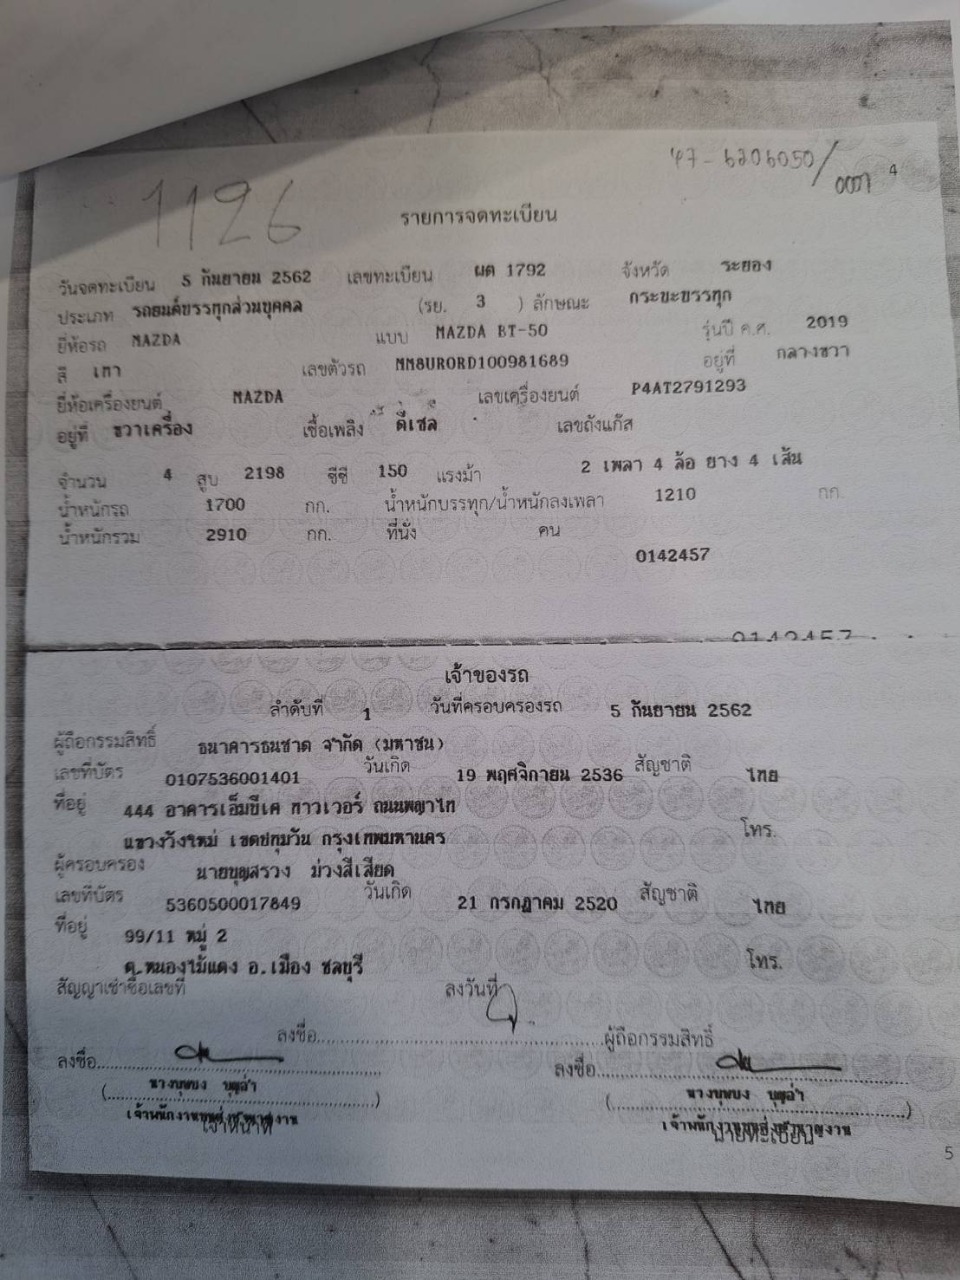 1126
47-6206050/
0001 4
รายการจดทะเบียน
วันจดทะเบียน 5 กันยายน 2562 เลขทะเบียน ผต 1792 จังหวัด ระยอง
ประเภท รถยนต์บรรทุกส่วนบุคคล (รย. 3 ) ลักษณะ กระบะบรรทุก
ยี่ห้อรถ MAZDA แบบ MAZDA BT-50 รุ่นปี ค.ศ. 2019
สี เทา เลขตัวรถ MM8URORD100981689 อยู่ที่ กลางขวา
ยี่ห้อเครื่องยนต์ MAZDA เลขเครื่องยนต์ P4AT2791293
อยู่ที่ ขวาเครื่อง เชื้อเพลิง ดีเซล เลขถังแก๊ส
จำนวน 4 สูบ 2198 ซีซี 150 แรงม้า 2 เพลา 4 ล้อ ยาง 4 เส้น
น้ำหนักรถ 1700 กก. น้ำหนักบรรทุก/น้ำหนักลงเพลา 1210 กก.
น้ำหนักรวม 2910 กก. ที่นั่ง คน
0142457
0142457
เจ้าของรถ
ลำดับที่ 1 วันที่ครอบครองรถ 5 กันยายน 2562
ผู้ถือกรรมสิทธิ์ ธนาคารธนชาต จำกัด (มหาชน)
เลขที่บัตร 0107536001401 วันเกิด 19 พฤศจิกายน 2536 สัญชาติ ไทย
ที่อยู่ 444 อาคารเอ็มบีเค ทาวเวอร์ ถนนพญาไท
แขวงวังใหม่ เขตปทุมวัน กรุงเทพมหานคร โทร.
ผู้ครอบครอง นายบุญสรวง ม่วงสีเสียด
เลขที่บัตร 5360500017849 วันเกิด 21 กรกฎาคม 2520 สัญชาติ ไทย
ที่อยู่ 99/11 หมู่ 2
ต.หนองไม้แดง อ.เมือง ชลบุรี โทร.
สัญญาเช่าซื้อเลขที่ ลงวันที่
ลงชื่อ ผู้ถือกรรมสิทธิ์
ลงชื่อ ลงชื่อ
(นางบุษบง ) (นางบุษบง )
เจ้าพนักงานขนส่งชำนาญงาน เจ้าพนักงานขนส่งชำนาญงาน
เจ้าหน้าที่ นายทะเบียน
5